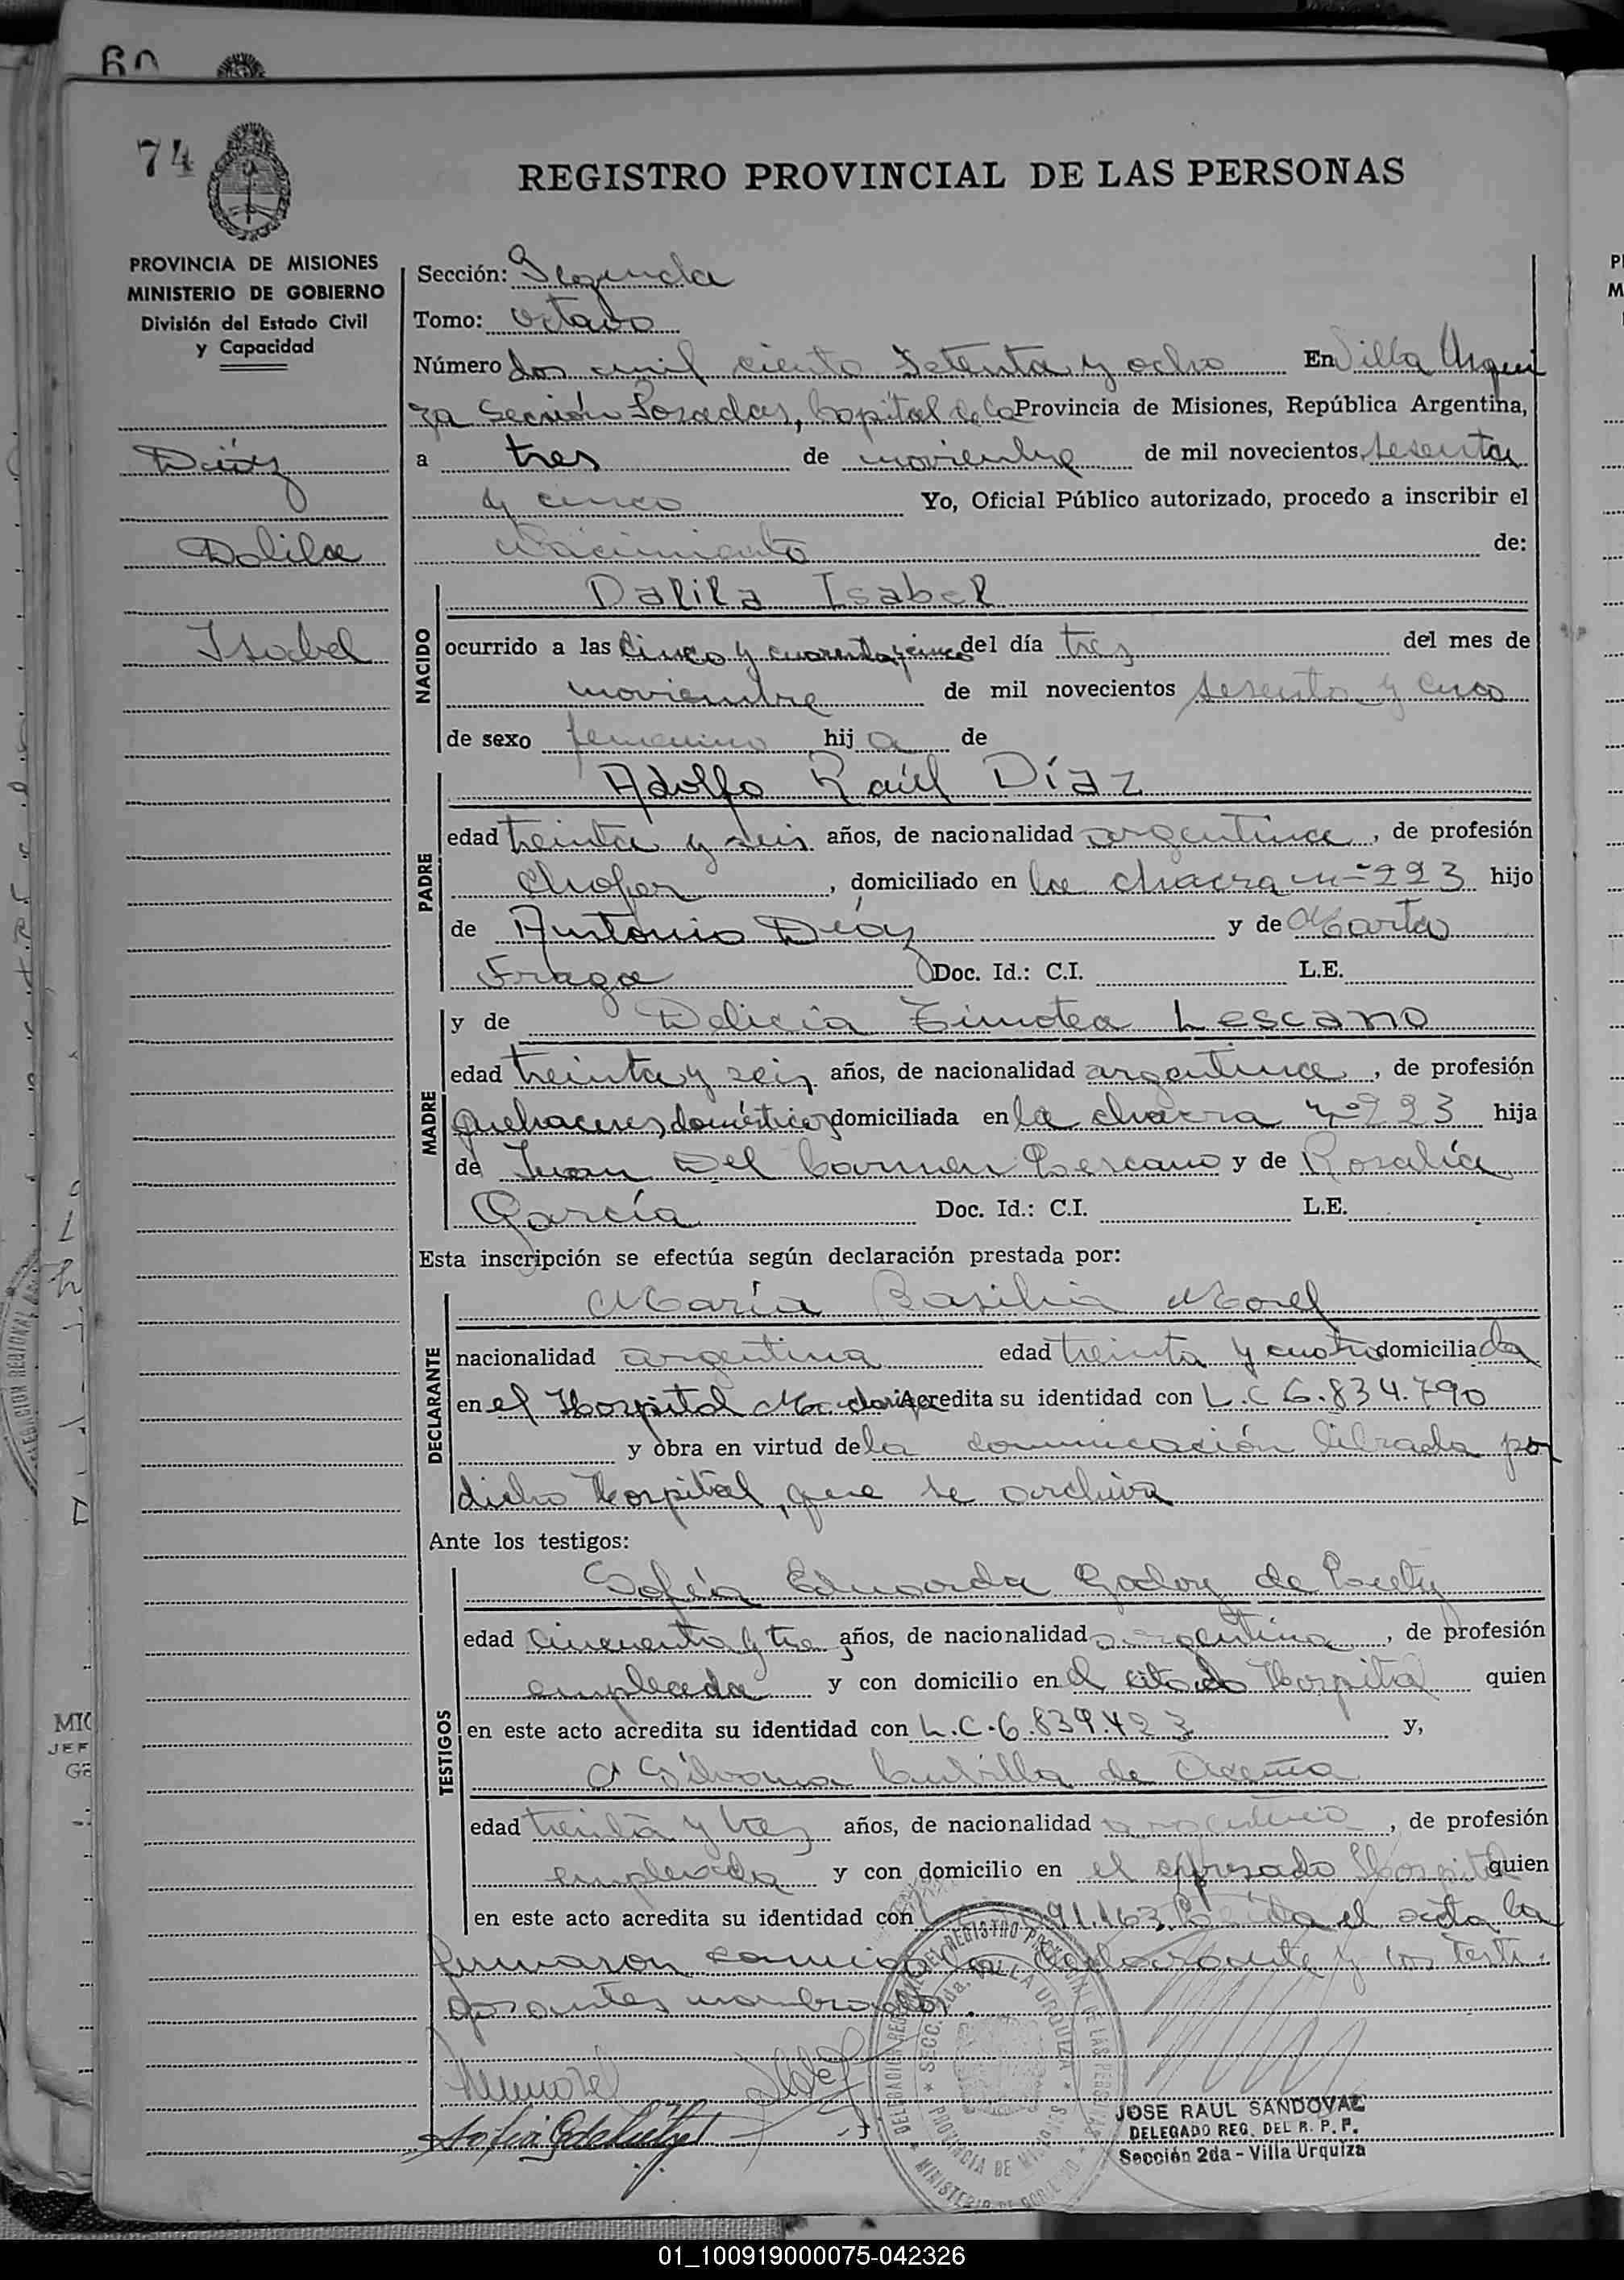 74
REGISTRO PROVINCIAL DE LAS PERSONAS
PROVINCIA DE MISIONES
MINISTERIO DE GOBIERNO
División del Estado Civil
y Capacidad
Díaz
Dalila
Isabel
Sección: Segunda
Tomo: Octavo
Número dos mil ciento setenta y ocho En Villa Urqui
za Sección Posadas, Capital de la Provincia de Misiones, República Argentina,
a tres de noviembre de mil novecientos sesenta
y cinco Yo, Oficial Público autorizado, procedo a inscribir el
Nacimiento de:
NACIDO
Dalila Isabel
ocurrido a las cinco y cuarenta y cinco del día tres del mes de
noviembre de mil novecientos sesenta y cinco
de sexo femenino hija de
PADRE
Adolfo Raúl Díaz
edad treinta y seis años, de nacionalidad argentina, de profesión
chofer, domiciliado en la chacra nº 223 hijo
de Antonio Díaz y de Marta
Fraga Doc. Id.: C.I. L.E.
MADRE
y de Delicia Timotea Lescano
edad treinta y seis años, de nacionalidad argentina, de profesión
quehaceres domésticos domiciliada en la chacra nº 223 hija
de Juan Del Carmen Lescano y de Rosalía
García Doc. Id.: C.I. L.E.
Esta inscripción se efectúa según declaración prestada por:
DECLARANTE
María Basilia Morel
nacionalidad argentina edad treinta y cuatro domiciliada
en el Hospital Madariaga acredita su identidad con L.C 6.834.790
y obra en virtud de la comunicación librada por
dicho Hospital, que se archiva
Ante los testigos:
TESTIGOS
Sofía Eduarda Godoy de
edad cincuenta y tres años, de nacionalidad argentina, de profesión
empleada y con domicilio en el citado Hospital quien
en este acto acredita su identidad con L.C. 6.839.423 y,
a Silvana de
edad treinta y tres años, de nacionalidad argentina, de profesión
empleada y con domicilio en el expresado Hospital quien
en este acto acredita su identidad con 91.163 Leída el acta la
firmaron conmigo la declarante y los testi-
gos antes nombrados.
JOSE RAUL SANDOVAL
DELEGADO REG. DEL R. P. P.
Sección 2da - Villa Urquiza
01_100919000075-042326